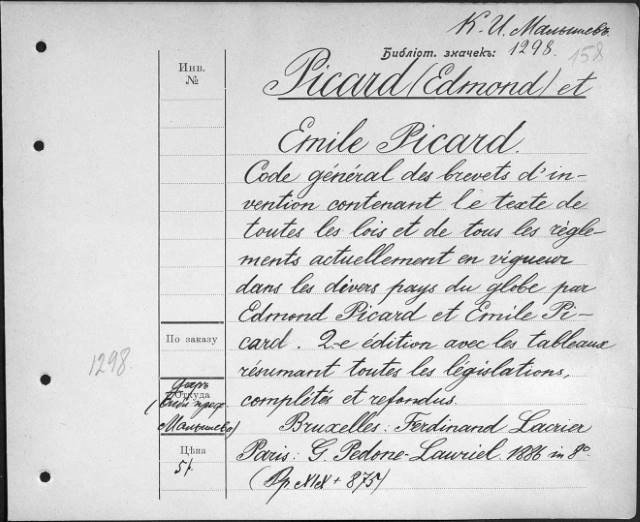 К. И. Малышевъ.
Библіот. значекъ: 1298. 158
Инв.
№
Picard (Edmond) et
Emile Picard.
Code général des brevets d'in-
vention contenant le texte de
toutes les lois et de tous les règle-
ments actuellement en vigueur
dans les divers pays du globe par
Edmond Picard et Emile Pi-
card. 2-e édition avec les tableaux
По заказу
résumant toutes les législations,
1298.
complétés et refondus.
даръ
Откуда
Малышева)
Bruxelles: Ferdinand Larier
Цѣна
Paris: G. Pedone-Lauriel. 1886 in 8º
(Pp XIX + 875)